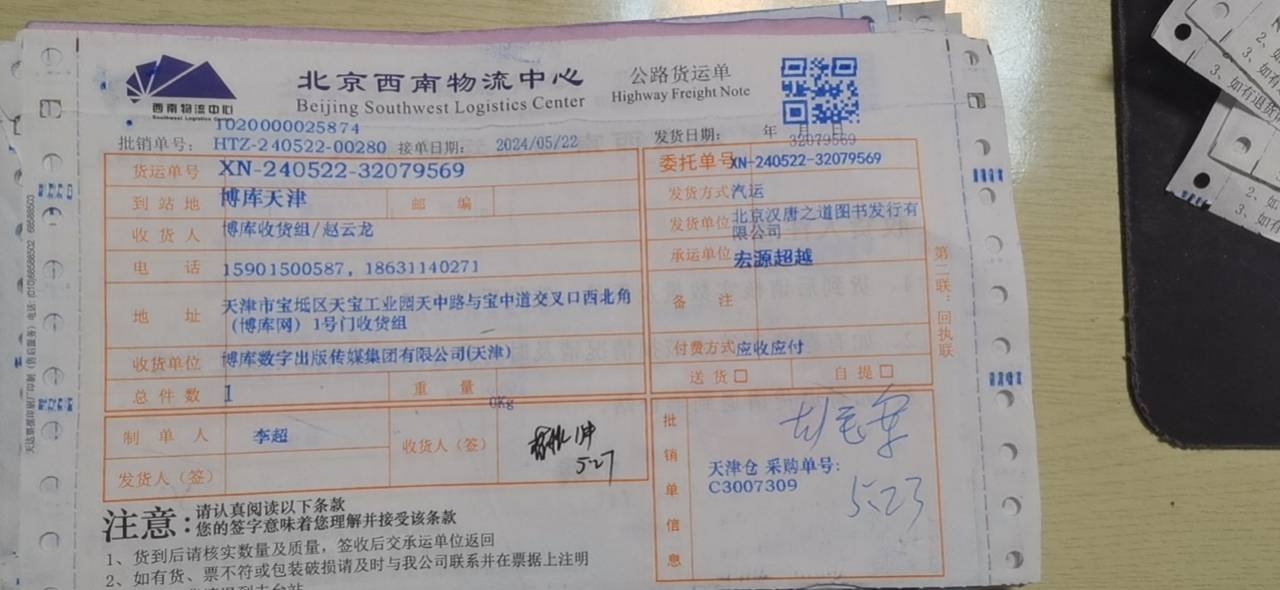 西南物流中心
Southwest Logistics Center
北京西南物流中心
Beijing Southwest Logistics Center
公路货运单
Highway Freight Note
T020000025874
批销单号: HTZ-240522-00280 接单日期: 2024/05/22
发货日期: 年 月 日
32079569
货运单号 XN-240522-32079569
委托单号 XN-240522-32079569
到站地 博库天津 邮编
发货方式 汽运
收货人 博库收货组/赵云龙
发货单位 北京汉唐之道图书发行有
限公司
电话 15901500587, 18631140271
承运单位 宏源超越
地址 天津市宝坻区天宝工业园天中路与宝中道交叉口西北角
(博库网) 1号门收货组
备注
收货单位 博库数字出版传媒集团有限公司(天津)
付费方式 应收应付
总件数 1 重量 0Kg
送货□ 自提□
制单人 李超
收货人(签)
5.27
发货人(签)
批销单信息
天津仓 采购单号:
C3007309
5.23
第二联:回执联
注意:
请认真阅读以下条款
您的签字意味着您理解并接受该条款
1、货到后请核实数量及质量，签收后交承运单位返回
2、如有货、票不符或包装破损请及时与我公司联系并在票据上注明